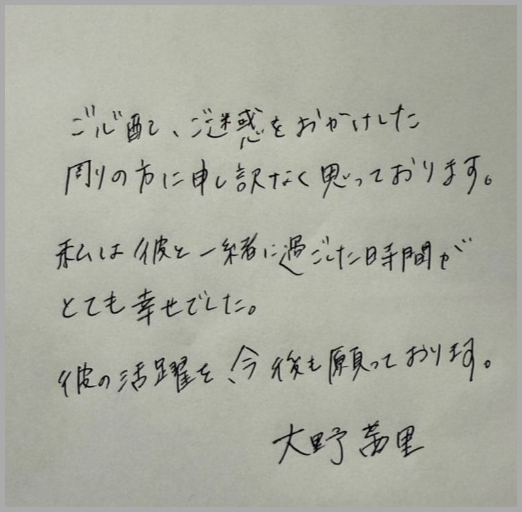 ご心配、ご迷惑をおかけした
周りの方に申し訳なく思っております。
私は彼と一緒に過ごした時間が
とても幸せでした。
彼の活躍を、今後も願っております。
大野茜里